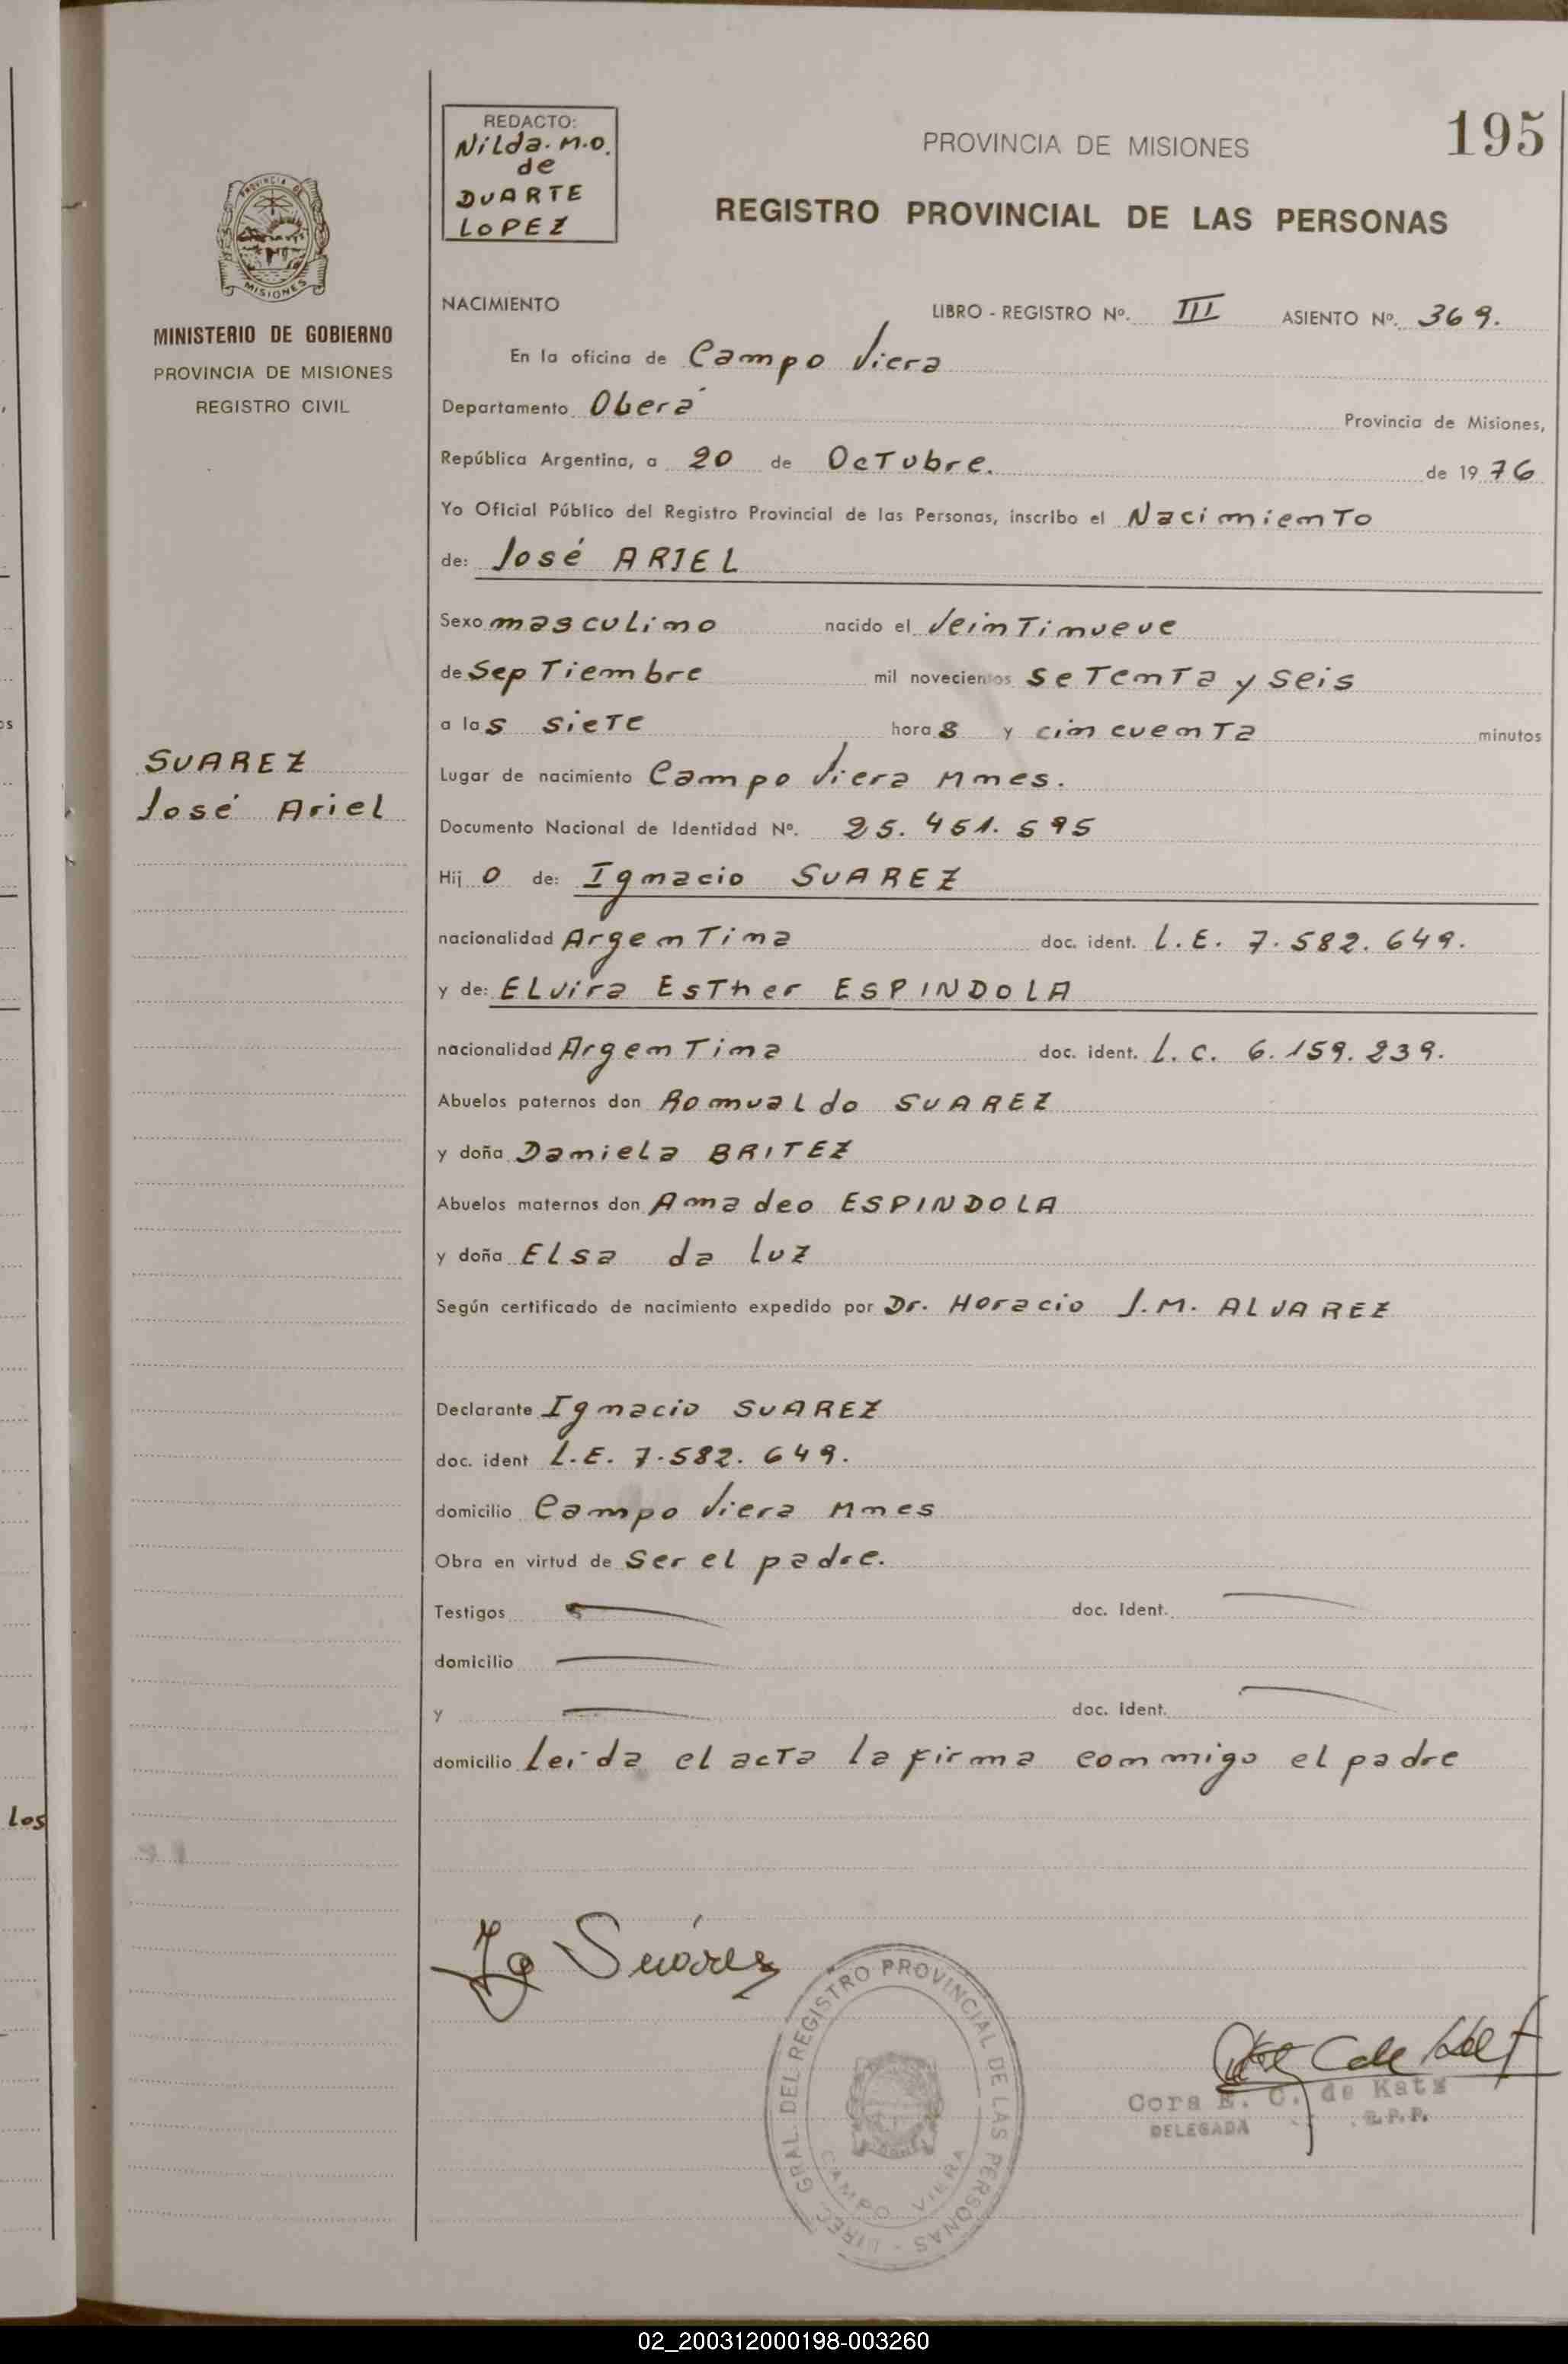 REDACTO:
Nilda. M.O.
de
DUARTE
LOPEZ
PROVINCIA DE MISIONES
195
REGISTRO PROVINCIAL DE LAS PERSONAS
PROVINCIA DE
MISIONES
MINISTERIO DE GOBIERNO
PROVINCIA DE MISIONES
REGISTRO CIVIL
SUAREZ
José Ariel
NACIMIENTO LIBRO - REGISTRO Nº. III ASIENTO Nº. 369.
En la oficina de Campo Viera
Departamento Oberá Provincia de Misiones,
República Argentina, a 20 de Octubre. de 1976
Yo Oficial Público del Registro Provincial de las Personas, inscribo el Nacimiento
de: José ARIEL
Sexo masculino nacido el Veintinueve
de Septiembre mil novecientos Setenta y seis
a las siete horas y cincuenta minutos
Lugar de nacimiento Campo Viera Mnes.
Documento Nacional de Identidad Nº. 25.451.595
Hijo de: Ignacio SUAREZ
nacionalidad Argentina doc. ident. L.E. 7.582.649.
y de: Elvira Esther ESPINDOLA
nacionalidad Argentina doc. ident. L.C. 6.159.239.
Abuelos paternos don Romualdo SUAREZ
y doña Daniela BRITEZ
Abuelos maternos don Amadeo ESPINDOLA
y doña Elsa da luz
Según certificado de nacimiento expedido por Dr. Horacio J.M. ALVAREZ
Declarante Ignacio SUAREZ
doc. ident L.E. 7.582.649.
domicilio Campo Viera Mnes
Obra en virtud de Ser el padre.
Testigos doc. Ident.
domicilio
y doc. Ident.
domicilio leída el acta la firma conmigo el padre
los
Ig Suárez
DIREC. GRAL. DEL REGISTRO PROVINCIAL DE LAS PERSONAS -
CAMPO VIERA
Cora E. C. de Katz
DELEGADA R.P.P.
02_200312000198-003260